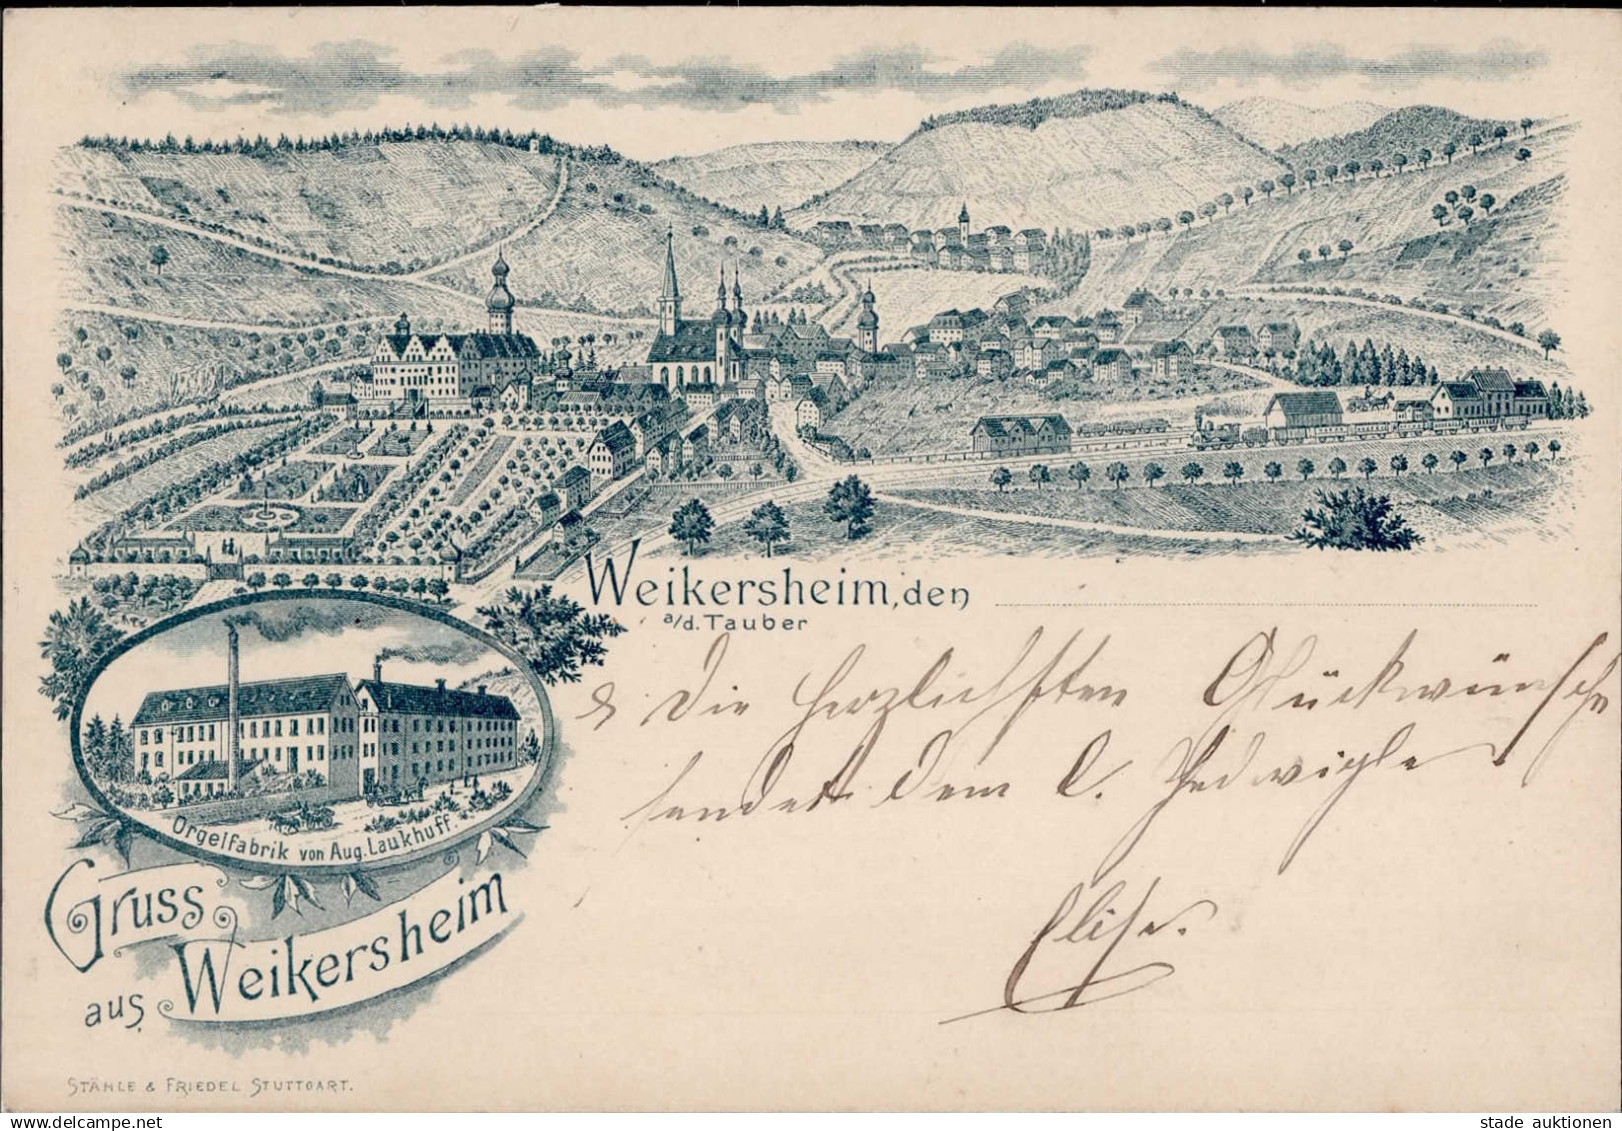 Weikersheim, den
a/d. Tauber
Die herzlichsten Glückwünsche
sendet dem l. Hedwigle
Elise.
Orgelfabrik von Aug. Laukhuff.
Gruss
aus Weikersheim
STÄHLE & FRIEDEL STUTTGART.
delcampe.net
stade auktionen